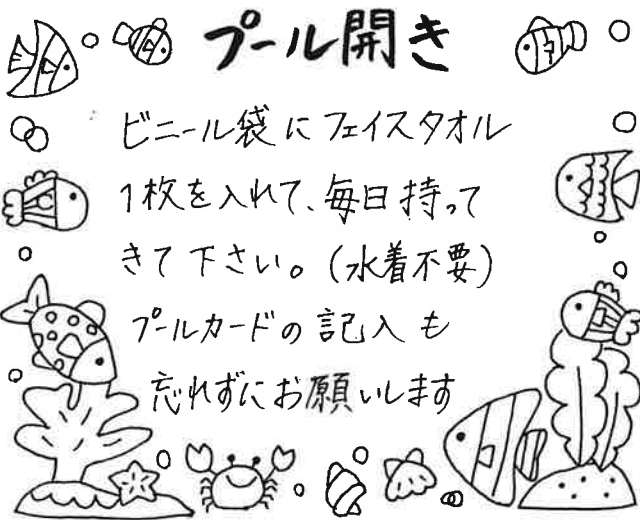 プール開き
ビニール袋にフェイスタオル
1枚を入れて、毎日持って
きて下さい。(水着不要)
プールカードの記入も
忘れずにお願いします